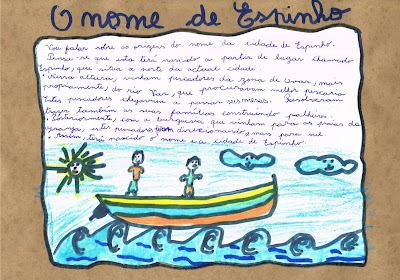 O nome de Espinho
Vou falar sobre as origens do nome da cidade de Espinho.
Pensa-se que esta terá nascido a partir do lugar chamado
Espinho, que situa a norte da actual cidade.
Nessa altura, vinham pescadores da zona de Ovar, mais
propriamente, do rio Var, que procuravam melhor pescaria
Estes pescadores chegavam a passar seis meses. Resolveram
trazer também as suas famílias construindo palheiros.
Posteriormente, com a burguesia que vinham para as praias da
granja, estes pescadores foram direccionando, mais para sul.
Assim, terá nascido o nome e a cidade de Espinho.